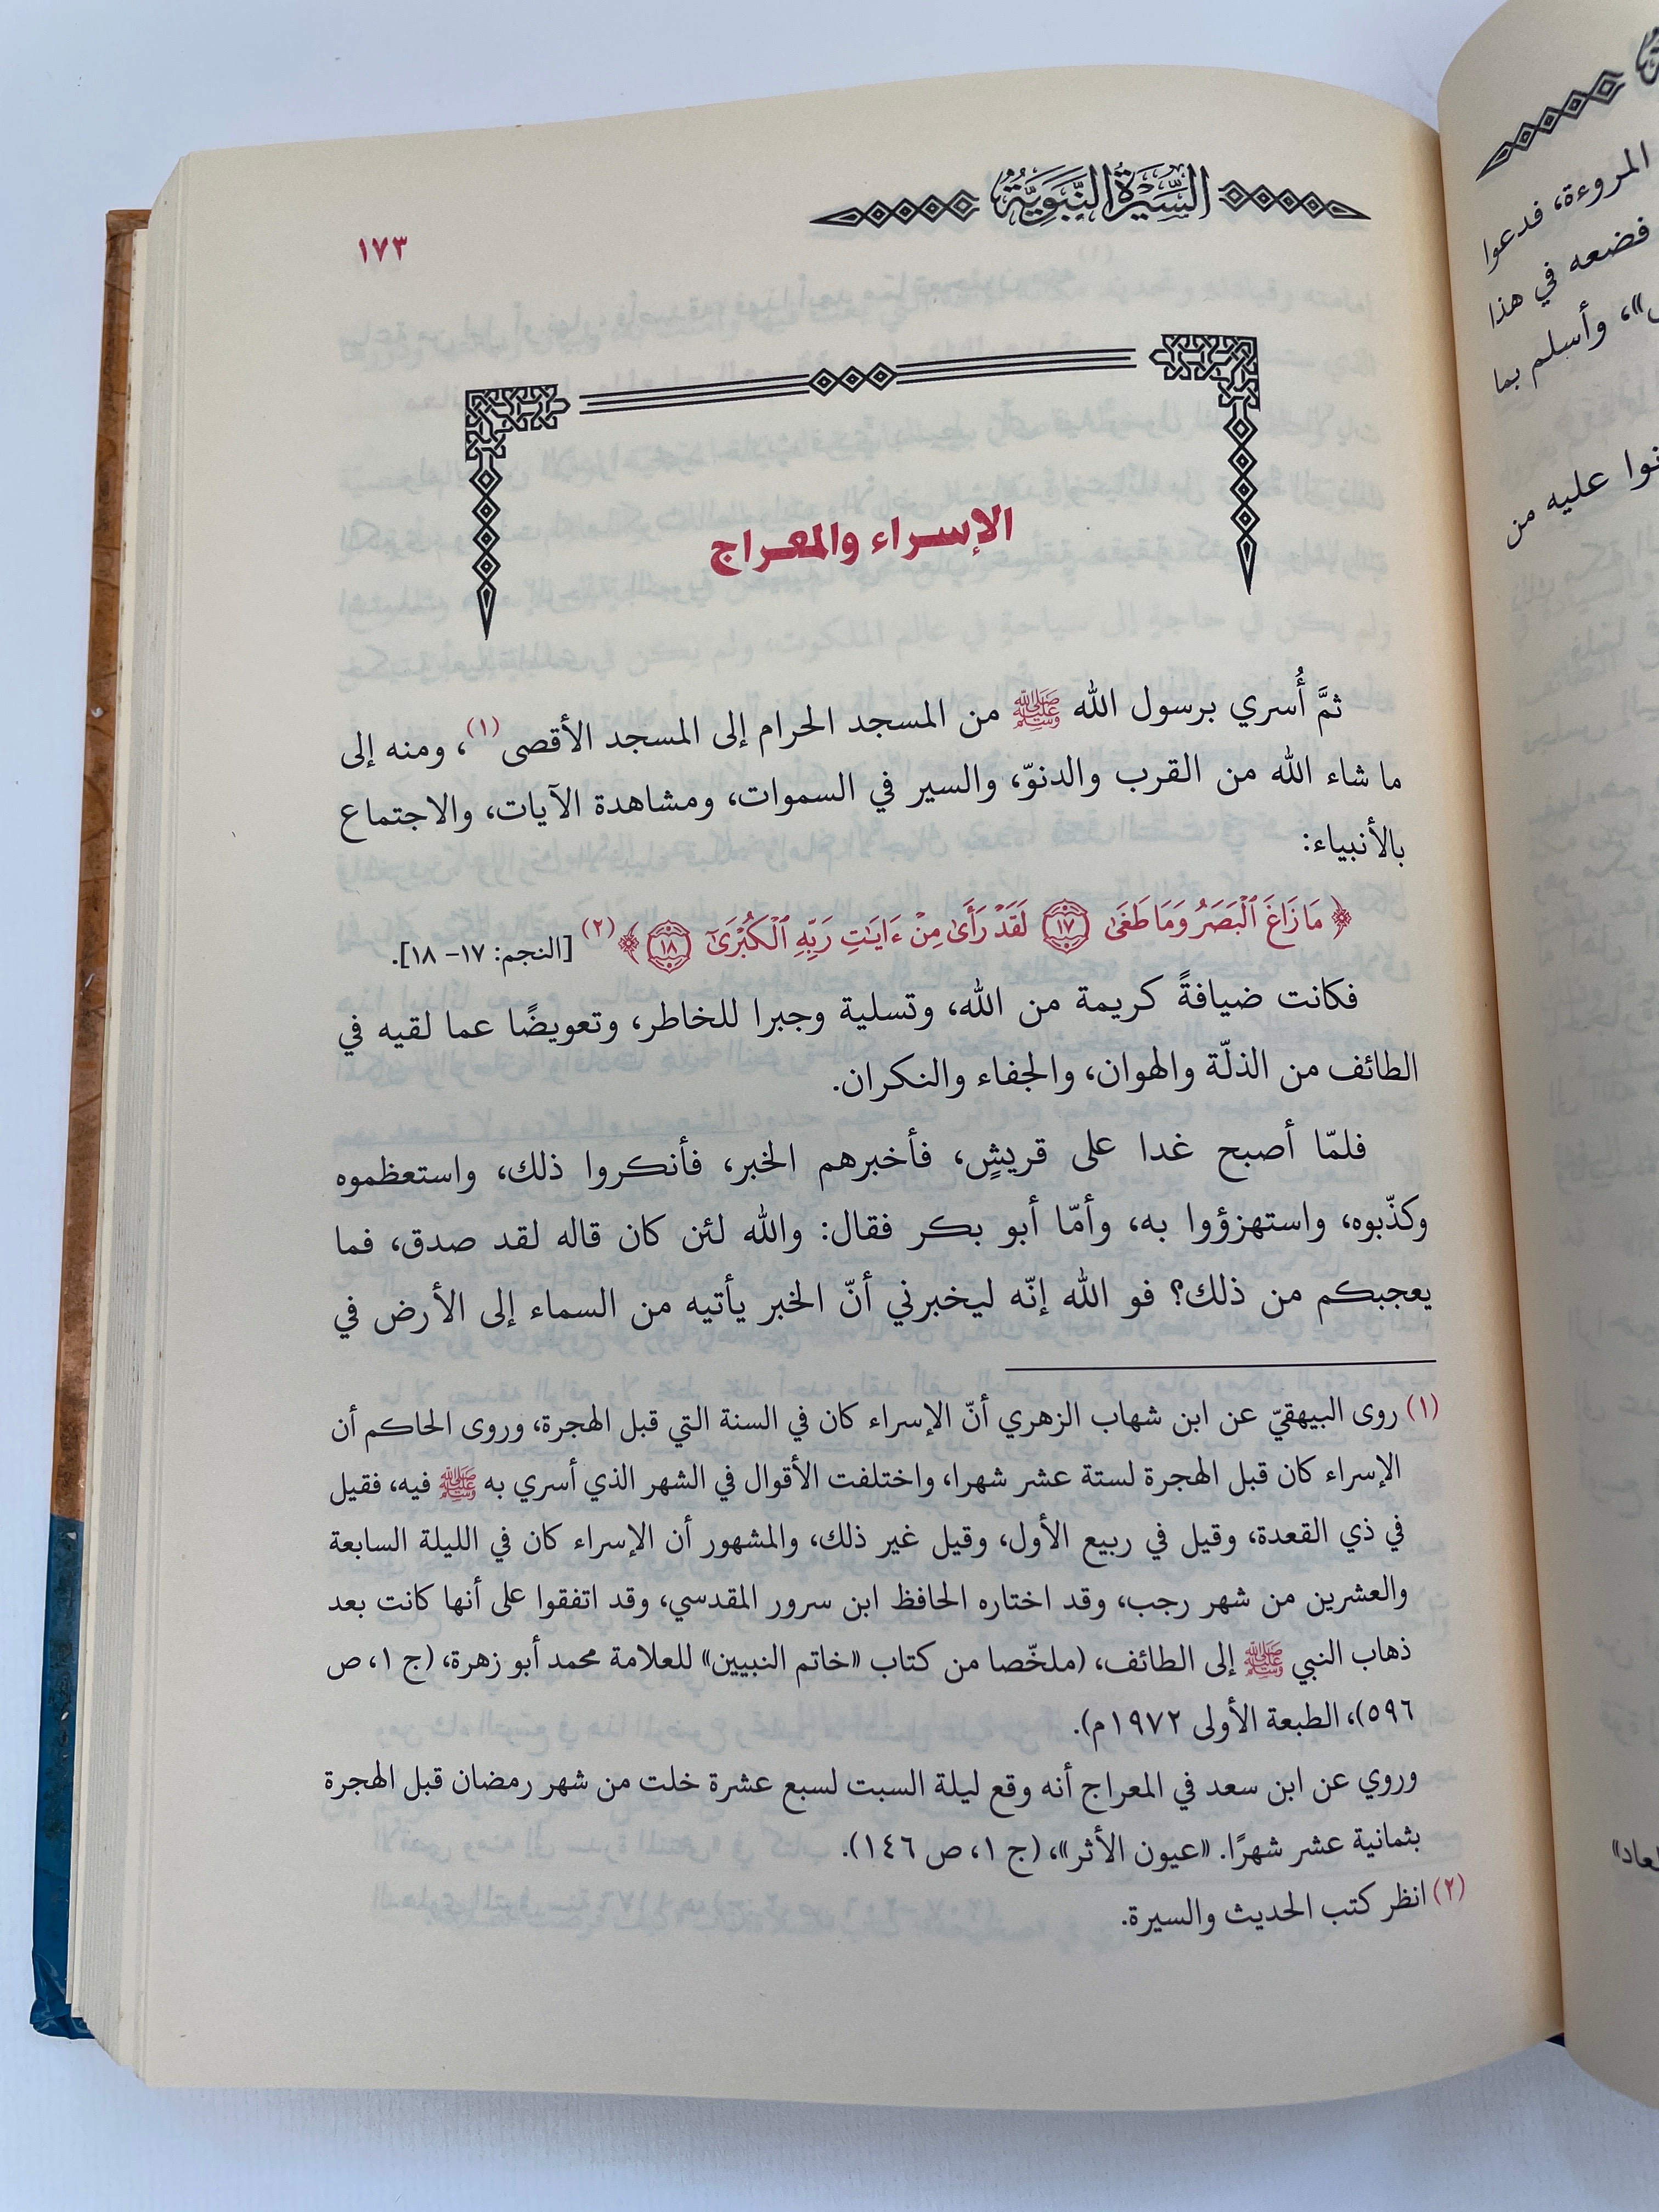 السيرة النبوية
١٧٣
الإسراء والمعراج
ثمَّ أُسري برسول الله ﷺ من المسجد الحرام إلى المسجد الأقصى(١)، ومنه إلى
ما شاء الله من القرب والدنوّ، والسير في السموات، ومشاهدة الآيات، والاجتماع
بالأنبياء:
﴿ مَا زَاغَ ٱلْبَصَرُ وَمَا طَغَىٰ ١٧ لَقَدْ رَأَىٰ مِنْ ءَايَـٰتِ رَبِّهِ ٱلْكُبْرَىٰٓ ١٨ ﴾(٢) [النجم: ١٧– ١٨].
فكانت ضيافةً كريمة من الله، وتسلية وجبرا للخاطر، وتعويضًا عما لقيه في
الطائف من الذلّة والهوان، والجفاء والنكران.
فلمّا أصبح غدا على قريشٍ، فأخبرهم الخبر، فأنكروا ذلك، واستعظموه
وكذّبوه، واستهزؤوا به، وأمّا أبو بكر فقال: والله لئن كان قاله لقد صدق، فما
يعجبكم من ذلك؟ فو الله إنّه ليخبرني أنّ الخبر يأتيه من السماء إلى الأرض في
(١) روى البيهقيّ عن ابن شهاب الزهري أنّ الإسراء كان في السنة التي قبل الهجرة، وروى الحاكم أن
الإسراء كان قبل الهجرة لستة عشر شهرا، واختلفت الأقوال في الشهر الذي أسري به ﷺ فيه، فقيل
في ذي القعدة، وقيل في ربيع الأول، وقيل غير ذلك، والمشهور أن الإسراء كان في الليلة السابعة
والعشرين من شهر رجب، وقد اختاره الحافظ ابن سرور المقدسي، وقد اتفقوا على أنها كانت بعد
ذهاب النبي ﷺ إلى الطائف، (ملخّصا من كتاب «خاتم النبيين» للعلامة محمد أبو زهرة، (ج ١، ص
٥٩٦)، الطبعة الأولى ١٩٧٢م).
وروي عن ابن سعد في المعراج أنه وقع ليلة السبت لسبع عشرة خلت من شهر رمضان قبل الهجرة
بثمانية عشر شهرًا. «عيون الأثر»، (ج ١، ص ١٤٦).
(٢) انظر كتب الحديث والسيرة.
المروءة، فدعوا
فضعه في هذا
، وأسلم بما
عليه من